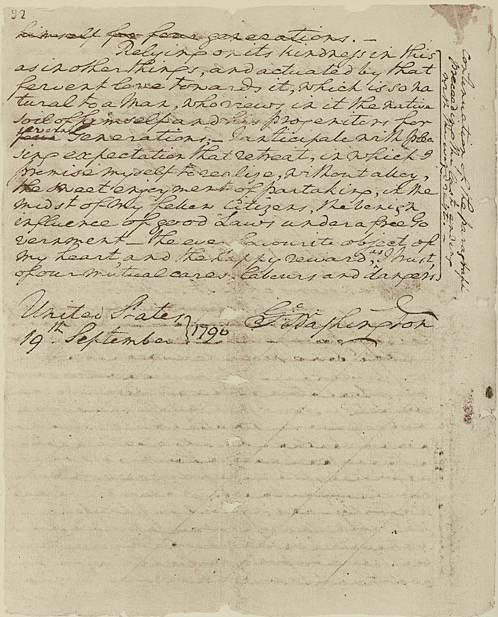 32
himself for four generations. —
Relying on its kindness in this
as in other things, and actuated by that
fervent love towards it, which is so na
tural to a Man, who views in it the native
soil of himself and his progenitors for
several
four Generations; I anticipate with plea
sing expectation that retreat, in which I
promise myself to realize, without alloy,
the sweet enjoyment of partaking, in the
midst of my fellow Citizens, the benign
influence of good Laws under a free Go
vernment — the ever favourite object of
my heart, and the happy reward, as I trust,
of our mutual cares, labours and dangers
United States
19th September
1796
Go. Washington
Continuation of the paragraph
preceding the last ending
with the word